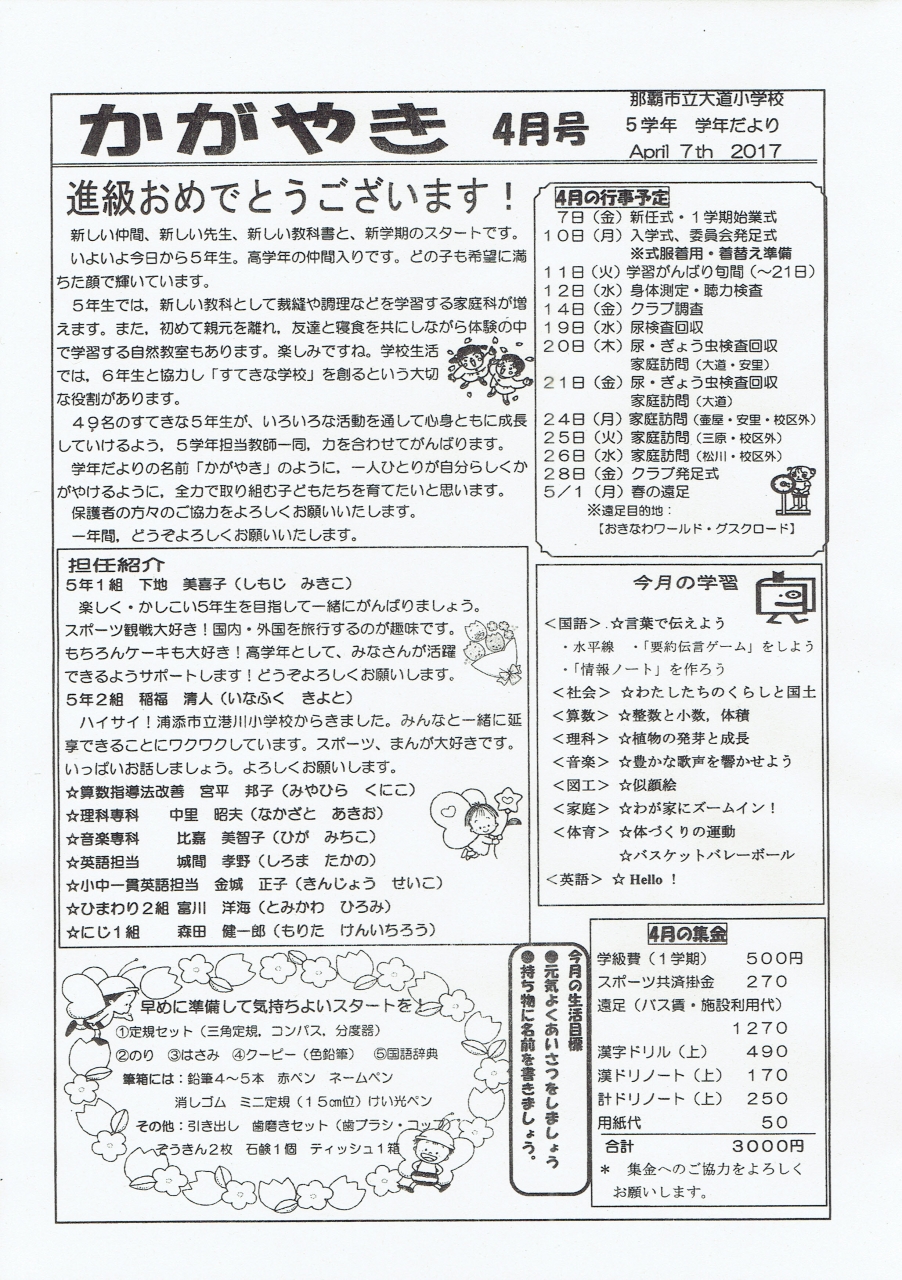 かがやき 4月号
那覇市立大道小学校
5学年 学年だより
April 7th 2017
進級おめでとうございます！
新しい仲間、新しい先生、新しい教科書と、新学期のスタートです。
いよいよ今日から5年生。高学年の仲間入りです。どの子も希望に満
ちた顔で輝いています。
5年生では，新しい教科として裁縫や調理などを学習する家庭科が増
えます。また，初めて親元を離れ，友達と寝食を共にしながら体験の中
で学習する自然教室もあります。楽しみですね。学校生活
では，6年生と協力し「すてきな学校」を創るという大切
な役割があります。
49名のすてきな5年生が、いろいろな活動を通して心身ともに成長
していけるよう，5学年担当教師一同，力を合わせてがんばります。
学年だよりの名前「かがやき」のように，一人ひとりが自分らしくか
がやけるように，全力で取り組む子どもたちを育てたいと思います。
保護者の方々のご協力をよろしくお願いいたします。
一年間，どうぞよろしくお願いいたします。
4月の行事予定
7日（金）新任式・1学期始業式
10日（月）入学式、委員会発足式
※式服着用・着替え準備
11日（火）学習がんばり旬間（～21日）
12日（水）身体測定・聴力検査
14日（金）クラブ調査
19日（水）尿検査回収
20日（木）尿・ぎょう虫検査回収
家庭訪問（大道・安里）
21日（金）尿・ぎょう虫検査回収
家庭訪問（大道）
24日（月）家庭訪問（壺屋・安里・校区外）
25日（火）家庭訪問（三原・校区外）
26日（水）家庭訪問（松川・校区外）
28日（金）クラブ発足式
5/1（月）春の遠足
※遠足目的地：
【おきなわワールド・グスクロード】
担任紹介
5年1組 下地 美喜子（しもじ みきこ）
楽しく・かしこい5年生を目指して一緒にがんばりましょう。
スポーツ観戦大好き！国内・外国を旅行するのが趣味です。
もちろんケーキも大好き！高学年として、みなさんが活躍
できるようサポートします！どうぞよろしくお願いします。
5年2組 稲福 清人（いなふく きよと）
ハイサイ！浦添市立港川小学校からきました。みんなと一緒に延
享できることにワクワクしています。スポーツ、まんが大好きです。
いっぱいお話しましょう。よろしくお願いします。
☆算数指導法改善 宮平 邦子（みやひら くにこ）
☆理科専科 中里 昭夫（なかざと あきお）
☆音楽専科 比嘉 美智子（ひが みちこ）
☆英語担当 城間 孝野（しろま たかの）
☆小中一貫英語担当 金城 正子（きんじょう せいこ）
☆ひまわり2組 富川 洋海（とみかわ ひろみ）
☆にじ1組 森田 健一郎（もりた けんいちろう）
今月の学習
＜国語＞．☆言葉で伝えよう
・水平線 ・「要約伝言ゲーム」をしよう
・「情報ノート」を作ろう
＜社会＞ ☆わたしたちのくらしと国土
＜算数＞ ☆整数と小数，体積
＜理科＞ ☆植物の発芽と成長
＜音楽＞ ☆豊かな歌声を響かせよう
＜図工＞ ☆似顔絵
＜家庭＞ ☆わが家にズームイン！
＜体育＞ ☆体づくりの運動
☆バスケットバレーボール
＜英語＞ ☆Hello！
早めに準備して気持ちよいスタートを！
①定規セット（三角定規，コンパス，分度器）
②のり ③はさみ ④クーピー（色鉛筆） ⑤国語辞典
筆箱には：鉛筆4～5本 赤ペン ネームペン
消しゴム ミニ定規（15㎝位）けい光ペン
その他：引き出し 歯磨きセット（歯ブラシ・コップ）
ぞうきん2枚 石鹸1個 ティッシュ1箱
今月の生活目標
●元気よくあいさつをしましょう
●持ち物に名前を書きましょう。
4月の集金
学級費（1学期） 500円
スポーツ共済掛金 270
遠足（バス賃・施設利用代）
1270
漢字ドリル（上） 490
漢ドリノート（上） 170
計ドリノート（上） 250
用紙代 50
合計 3000円
＊ 集金へのご協力をよろしく
お願いします。